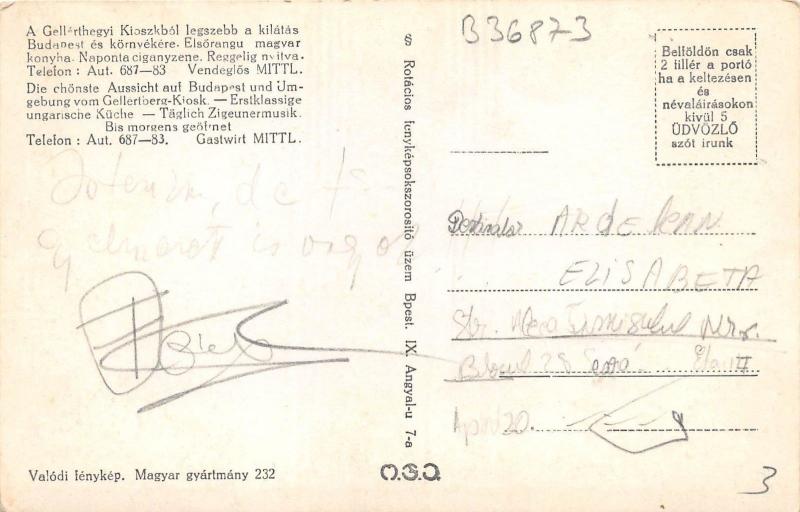 A Gellérthegyi Kioszkból legszebb a kilátás
Budapest és környékére. Elsőrangu magyar
konyha. Naponta ciganyzene. Reggelig nyitva.
Telefon : Aut. 687—83 Vendeglős MITTL.
Die chönste Aussicht auf Budapest und Um-
gebung vom Gellertberg-Kiosk. — Erstklassige
ungarische Küche — Täglich Zigeunermusik.
Bis morgens geöffnet
Telefon : Aut. 687—83. Gastwirt MITTL.
Valódi fénykép. Magyar gyártmány 232
§ Rotációs fenyképsokszorositó üzem Bpest. IX. Angyal-u 7-a
O.S.O.
B36873
Belföldön csak
2 fillér a portó
ha a keltezésen
és
névaláírásokon
kivül 5
ÜDVÖZLŐ
szót irunk
ARDELEAN
ELISABETA
Str.
Blocul 28
20.
3